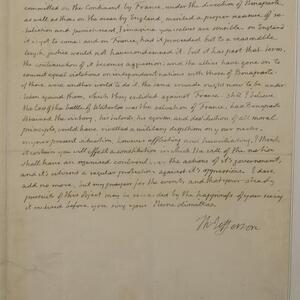 committed on the Continent by France, under the direction of Bonaparte,
as well as those on the seas by England, merited a proper measure of re-
-taliation and punishment. I imagine you also are sensible
it right to come and on France, had it proceeded but to a reasonable
length justice would not have condemned it. but it has past that term,
the continuance of it becomes aggression: and the allies have gone on to
commit equal violations on independant nations with those of Bonaparte
of them were another would to do it. the same wrongs ought never to be under-
taken against them, which they existed against France. still I believe
the loss of the battle of Waterloo was the salvation of France. had Bonaparte
obtained the victory, his talents, his egoism, and destitution of all moral
principle, would have rivetted a military despotism on your necks.
in your present situation, however afflicting and humiliating, I think
it certain you will effect a constitution in which the will of the nation
shall have an organised control over the actions of its government,
and its citizens a regular protection against its oppressions. I dare
add no more, but my prayer for the event, and that your steady
pursuits of this object may be rewarded by the happiness of your seeing
it matured before you sing your Nunc dimittas.
Th: Jefferson